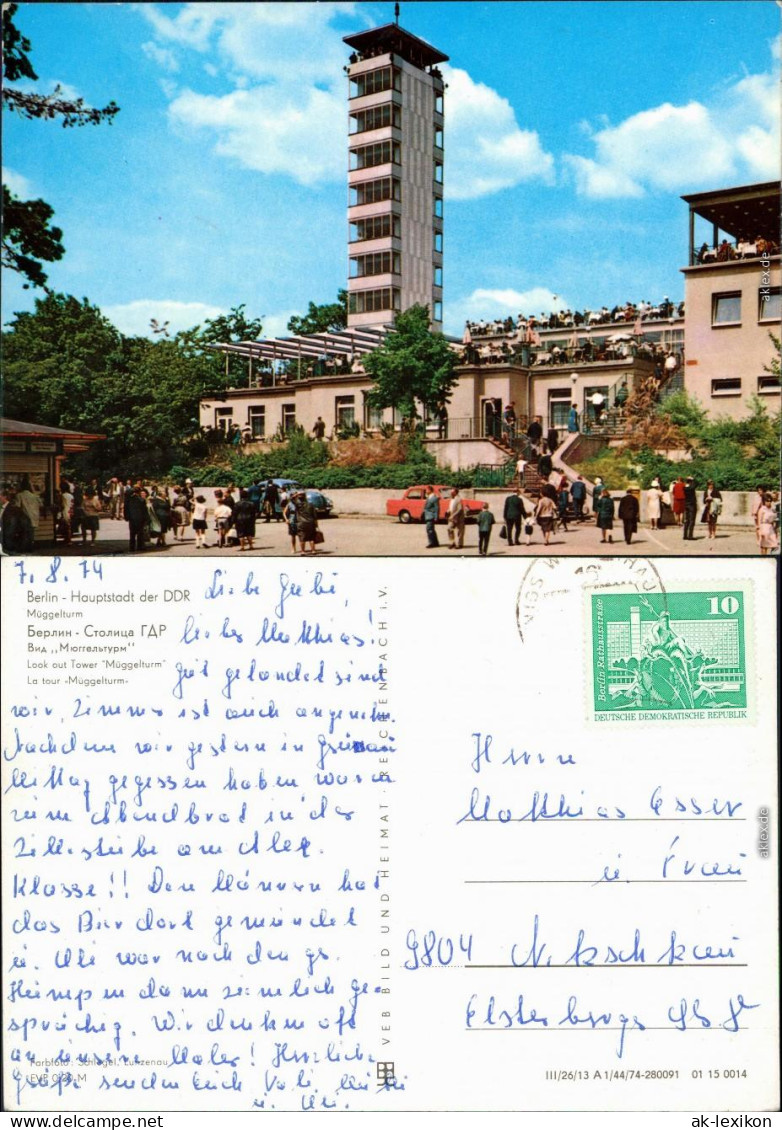 aklex.de
7.8.74
Berlin - Hauptstadt der DDR
Müggelturm
Берлин - Столица ГДР
Вид „Мюггельтурм"
Look out Tower "Müggelturm"
La tour »Müggelturm«
Liebe Gabi,
lieber Matthias!
Gut gelandet sind
wir, Zimmer ist auch angenehm.
Nachdem wir gestern in Grünau
Mittag gegessen haben waren
zum Abendbrot in der
Zillestube am Alex.
Klasse!! Den Männern hat
das Bier dort gemundet
u. Uli war nach den
dann ziemlich ge-
sprächig. Wir denken oft
an unsere Maler! Herzliche
Grüße senden Euch
u. Uli.
Farbfoto: Schlegel, Lunzenau
EVP 0,20 M
VEB BILD UND HEIMAT · REICHENBACH I.V.
10
Berlin Rathausstraße
DEUTSCHE DEMOKRATISCHE REPUBLIK
Herrn
Matthias Esser
u. Frau
9804 Netzschkau
Elsterberger
III/26/13 A 1/44/74-280091 01 15 0014
aklex.de
ak-lexikon